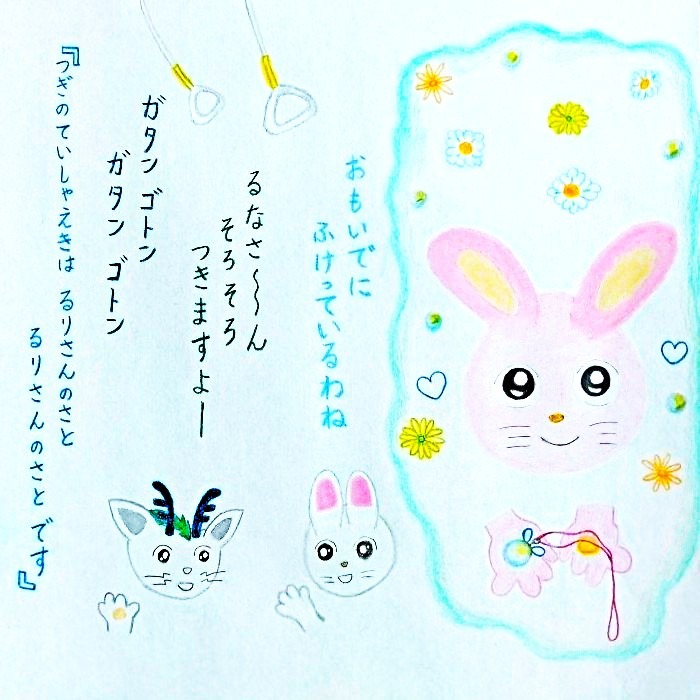 おもいでに
ふけっているわね
るなさ〜〜ん
そろそろ
つきますよー
ガタン ゴトン
ガタン ゴトン
『つぎのていしゃえきは るりさんのさと
るりさんのさと です』